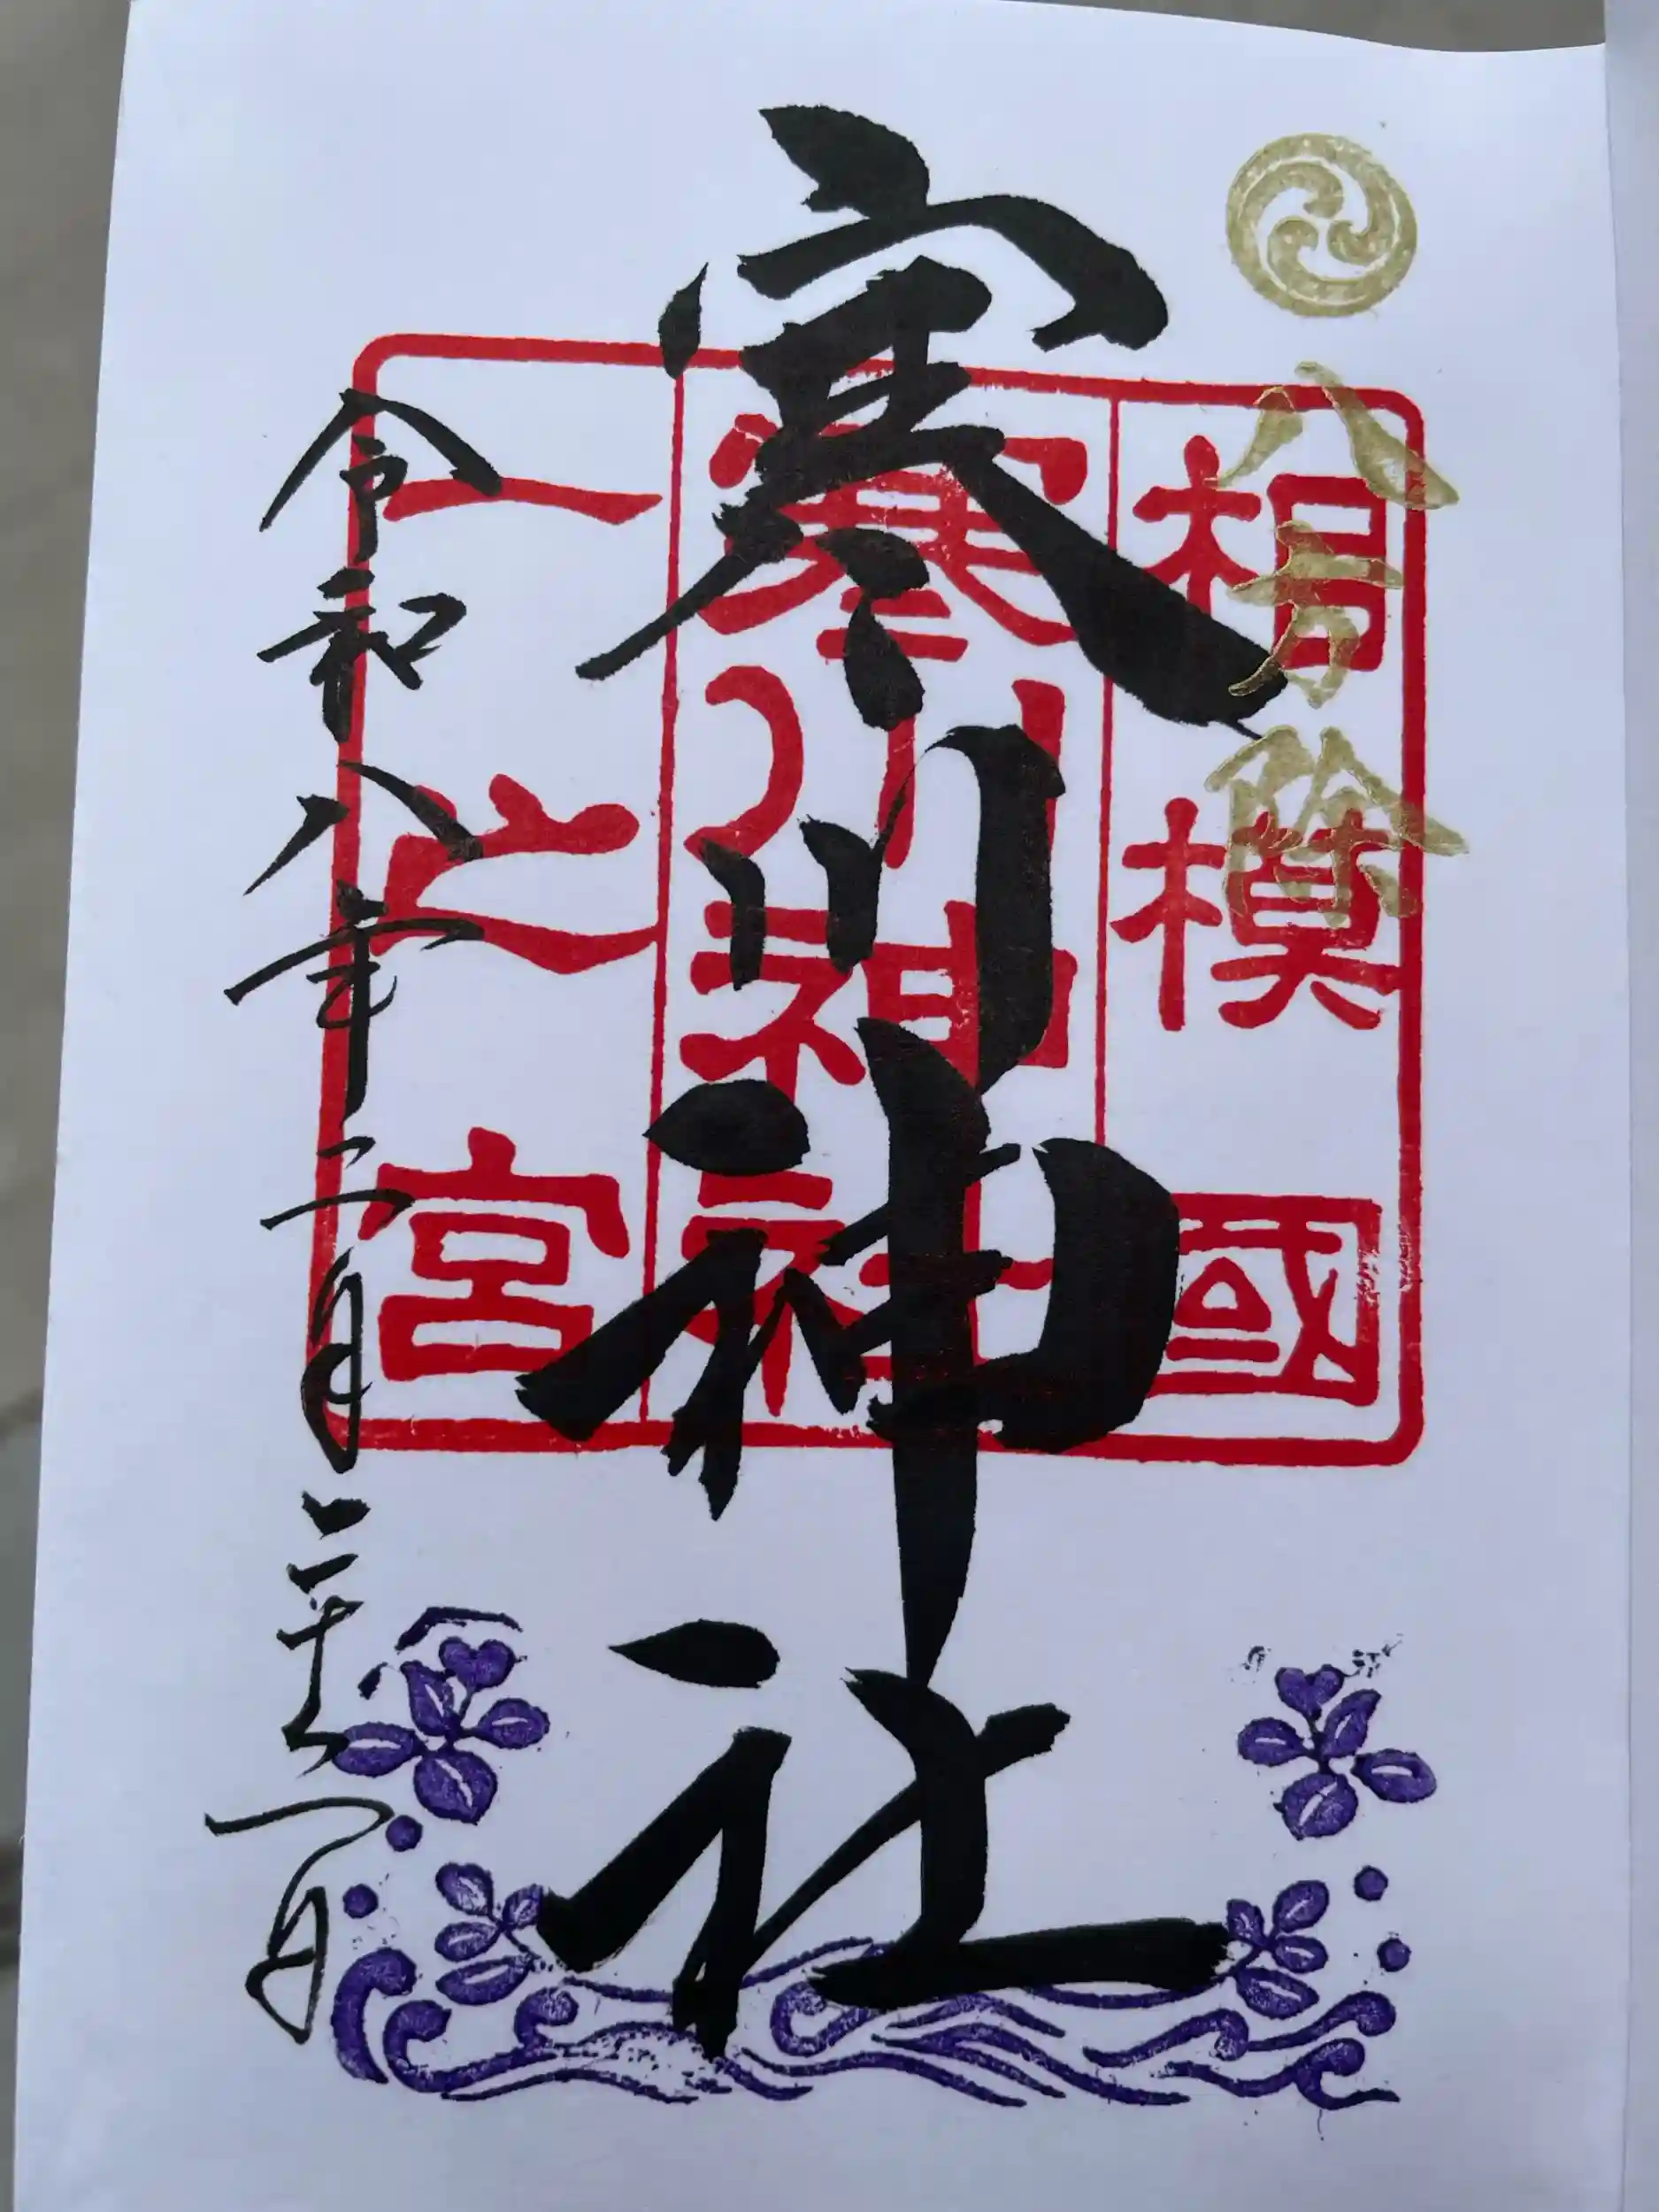 八方除
相模國
寒川神社
寒川神社
一之宮
令和八年二月二十日